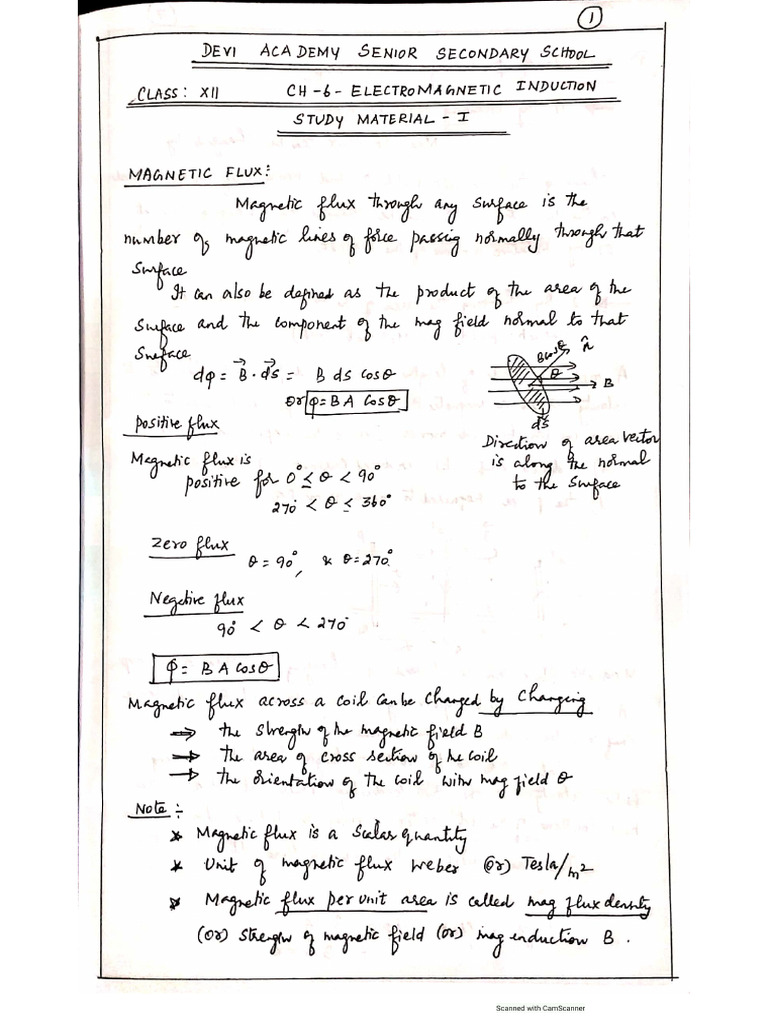 1
DEVI ACADEMY SENIOR SECONDARY SCHOOL
CLASS: XII CH-6- ELECTROMAGNETIC INDUCTION
STUDY MATERIAL - I
MAGNETIC FLUX:
Magnetic flux through any surface is the
number of magnetic lines of force passing normally through that
surface
It can also be defined as the product of the area of the
surface and the component of the mag field normal to that
surface
dφ = B⃗ · ds⃗ = B ds cosθ
or φ = BA Cosθ
Bcosθ n̂
θ
B
ds⃗
Direction of area vector
is along the normal
to the surface
Positive flux
Magnetic flux is
positive for 0° ≤ θ < 90°
270° < θ ≤ 360°
Zero flux
θ = 90°, & θ = 270°
Negative flux
90° < θ < 270°
φ = BA cosθ
Magnetic flux across a coil can be changed by changing
⇒ the strength of the magnetic field B
⇒ the area of cross section of the coil
⇒ the orientation of the coil with mag field θ
Note :-
* Magnetic flux is a Scalar quantity
* Unit of magnetic flux weber (or) Tesla/m²
* Magnetic flux per unit area is called mag flux density
(or) strength of magnetic field (or) mag induction B.
Scanned with CamScanner